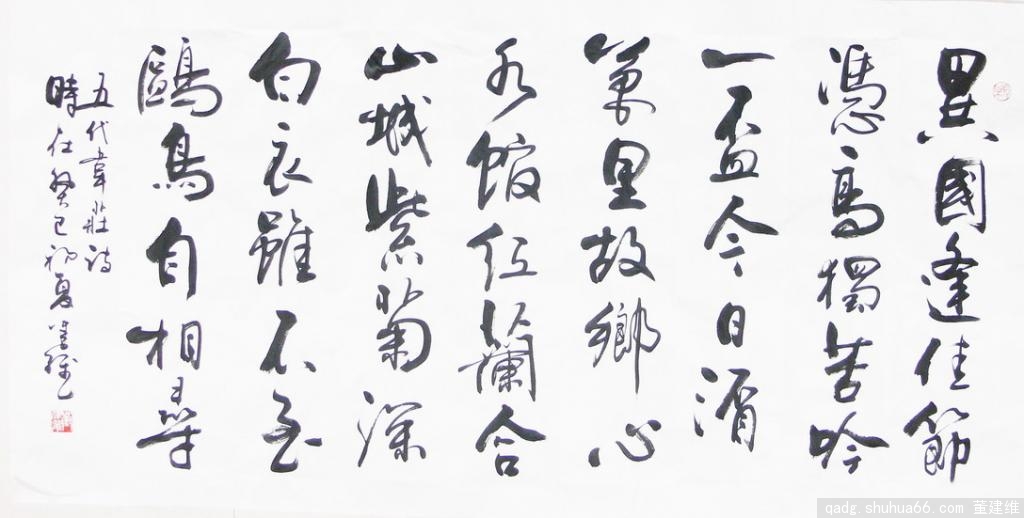 異國逢佳節
憑高獨苦吟
一盃今日酒
萬里故鄉心
水館紅蘭合
山城紫菊深
白衣雖不至
鷗鳥自相尋
五代韋莊詩
時在癸巳初夏建維
qadg.shuhua66.com 董建维